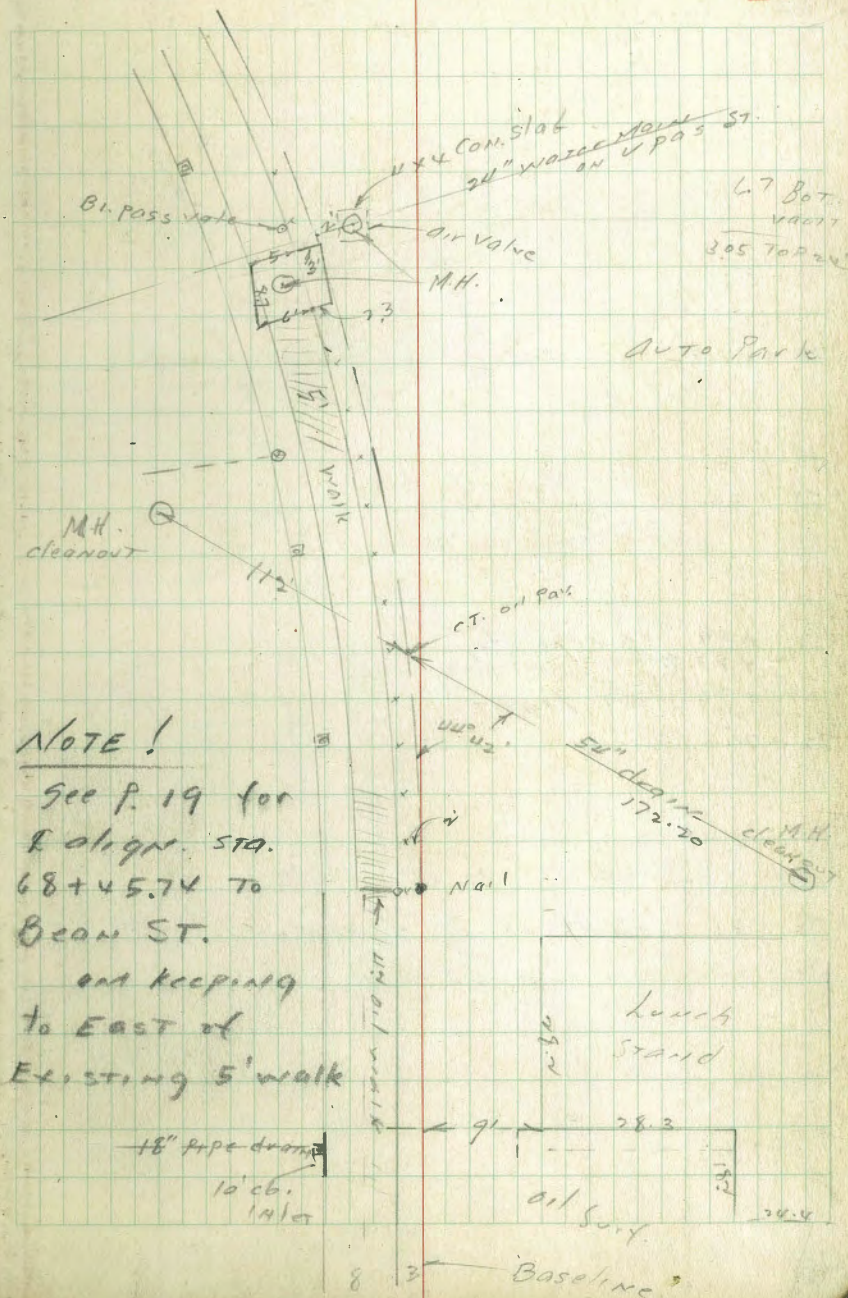 4x4 Con. Slab
24" Water Main
on Vpas ST.
6.7 Bot.
vault
3.05 Top 24"
Bi. Pass valve
2'
air valve
M.H.
5
8.7
6
2.3
Auto Park
5'
walk
M.H.
cleanout
112'
C.T. oil Pav.
44° 42'
54" drain
172.20
M.H.
cleanout
2'
Nail
NOTE!
See P. 19 for
℄ align. STA.
68+45.74 To
Bean ST.
on keeping
to East of
Existing 5' walk
Lunch
Stand
9'
28.3
18" Pipe drain
10' cb.
Inlet
oil Surf.
24.4
8
3
Baseline